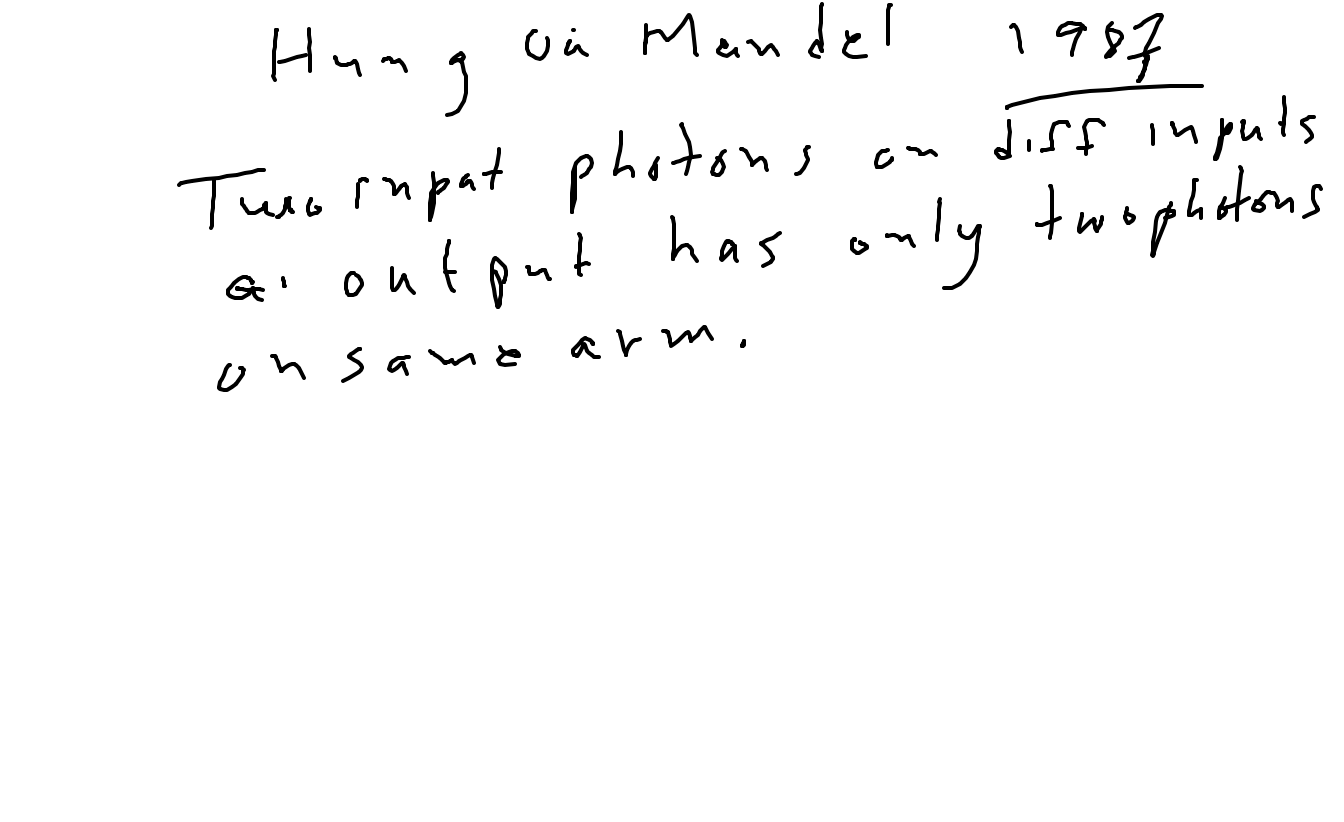 Hung Ou Mandel 1987
Two input photons on diff inputs
output has only two photons
on same arm.